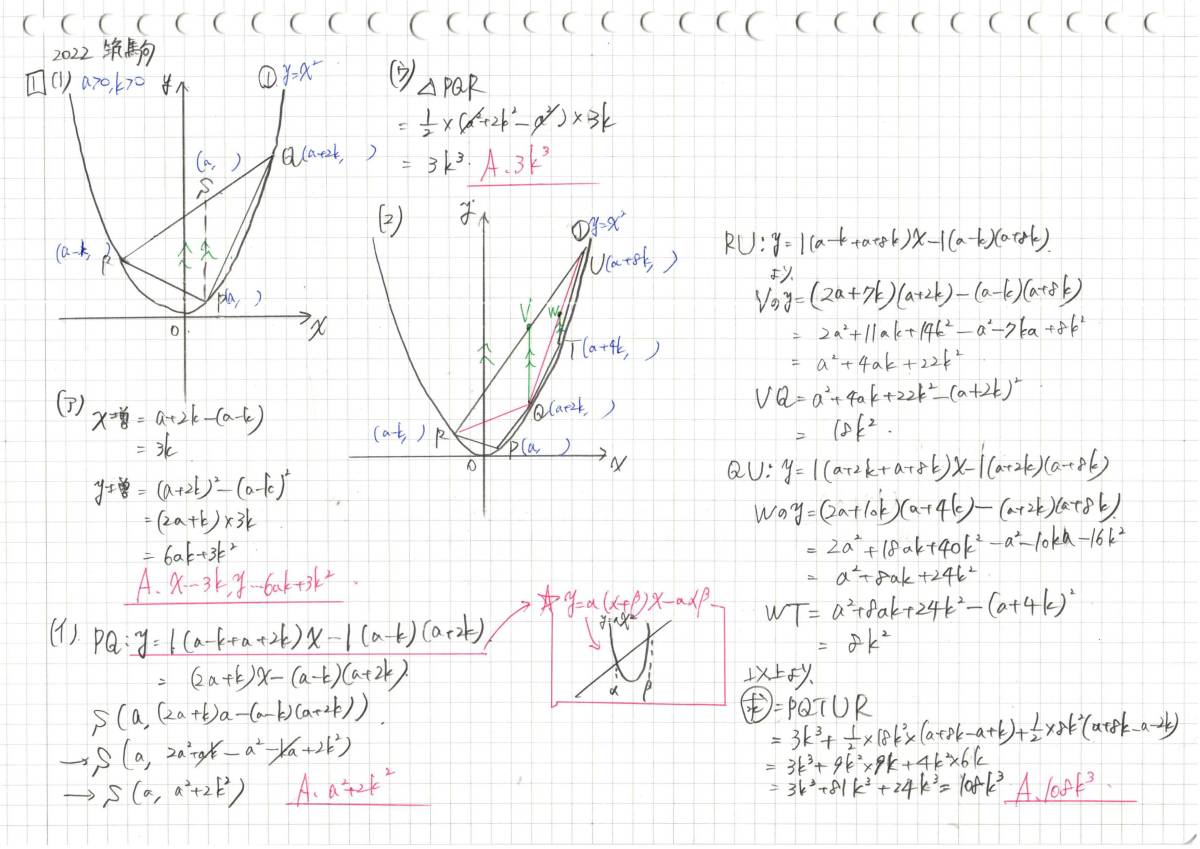 2022 筑駒
1 (1) a>0, k>0
y
① y=x²
Q(a+2k, )
(a, )
S
(a-k, )
R
P(a, )
O
x
(ア) xの増 = a+2k-(a-k)
= 3k
yの増 = (a+2k)²-(a-k)²
= (2a+k)×3k
= 6ak+3k²
A. x…3k, y…6ak+3k²
(イ) PQ: y=1(a-k+a+2k)x-1(a-k)(a+2k)
= (2a+k)x-(a-k)(a+2k)
S(a, (2a+k)a-(a-k)(a+2k))
→ S(a, 2a²+ak-a²-ka+2k²)
→ S(a, a²+2k²)
A. a²+2k²
(ウ) △PQR
= 1/2×(a²+2k²-a²)×3k
= 3k³.
A. 3k³
(2)
y
① y=x²
U(a+8k, )
V
W
T(a+4k, )
Q(a+2k, )
(a-k, )
R
P(a, )
O
x
☆ y=a(α+β)x-aαβ
y=ax²
α
β
RU: y=1(a-k+a+8k)x-1(a-k)(a+8k)
より、
Vのy=(2a+7k)(a+2k)-(a-k)(a+8k)
= 2a²+11ak+14k²-a²-7ka+8k²
= a²+4ak+22k²
VQ= a²+4ak+22k²-(a+2k)²
= 18k².
QU: y=1(a+2k+a+8k)x-1(a+2k)(a+8k)
Wのy=(2a+10k)(a+4k)-(a+2k)(a+8k)
= 2a²+18ak+40k²-a²-10ka-16k²
= a²+8ak+24k²
WT= a²+8ak+24k²-(a+4k)²
= 8k²
以上より、
求=PQTUR
= 3k³+1/2×18k²×(a+8k-a+k)+1/2×8k²(a+8k-a-2k)
= 3k³+9k²×9k+4k²×6k
= 3k³+81k³+24k³=108k³
A. 108k³.